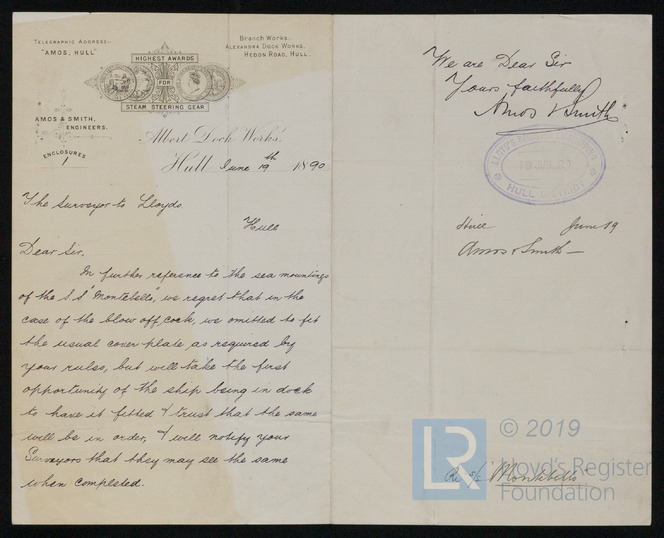 TELEGRAPHIC ADDRESS:-
"AMOS, HULL"
HIGHEST AWARDS
FOR
STEAM STEERING GEAR
Branch Works:-
ALEXANDRA DOCK WORKS,
HEDON ROAD, HULL.
AMOS & SMITH,
ENGINEERS.
ENCLOSURES
1
Albert Dock Works,
Hull June 19th 1890
The Surveyor to Lloyds
Hull
Dear Sir,
In further reference to the sea mountings
of the S.S "Montebello", we regret that in the
case of the blow off cock, we omitted to fit
the usual cover plate, as required by
your rules, but will take the first
opportunity of the ship being in dock
to have it fitted & trust that the same
will be in order, & will notify your
Surveyors that they may see the same
when completed.
We are Dear Sir
Yours faithfully
Amos & Smith
LLOYD'S
19 JUN 90
HULL DISTRICT
Hull June 19
Amos & Smith —
Re S/S "Montebello"
LR © 2019
Lloyd's Register
Foundation